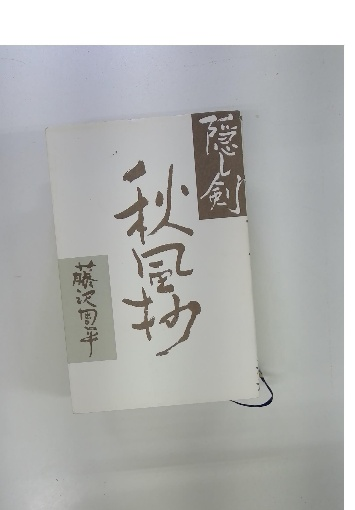 隠し剣
秋風抄
藤沢周平